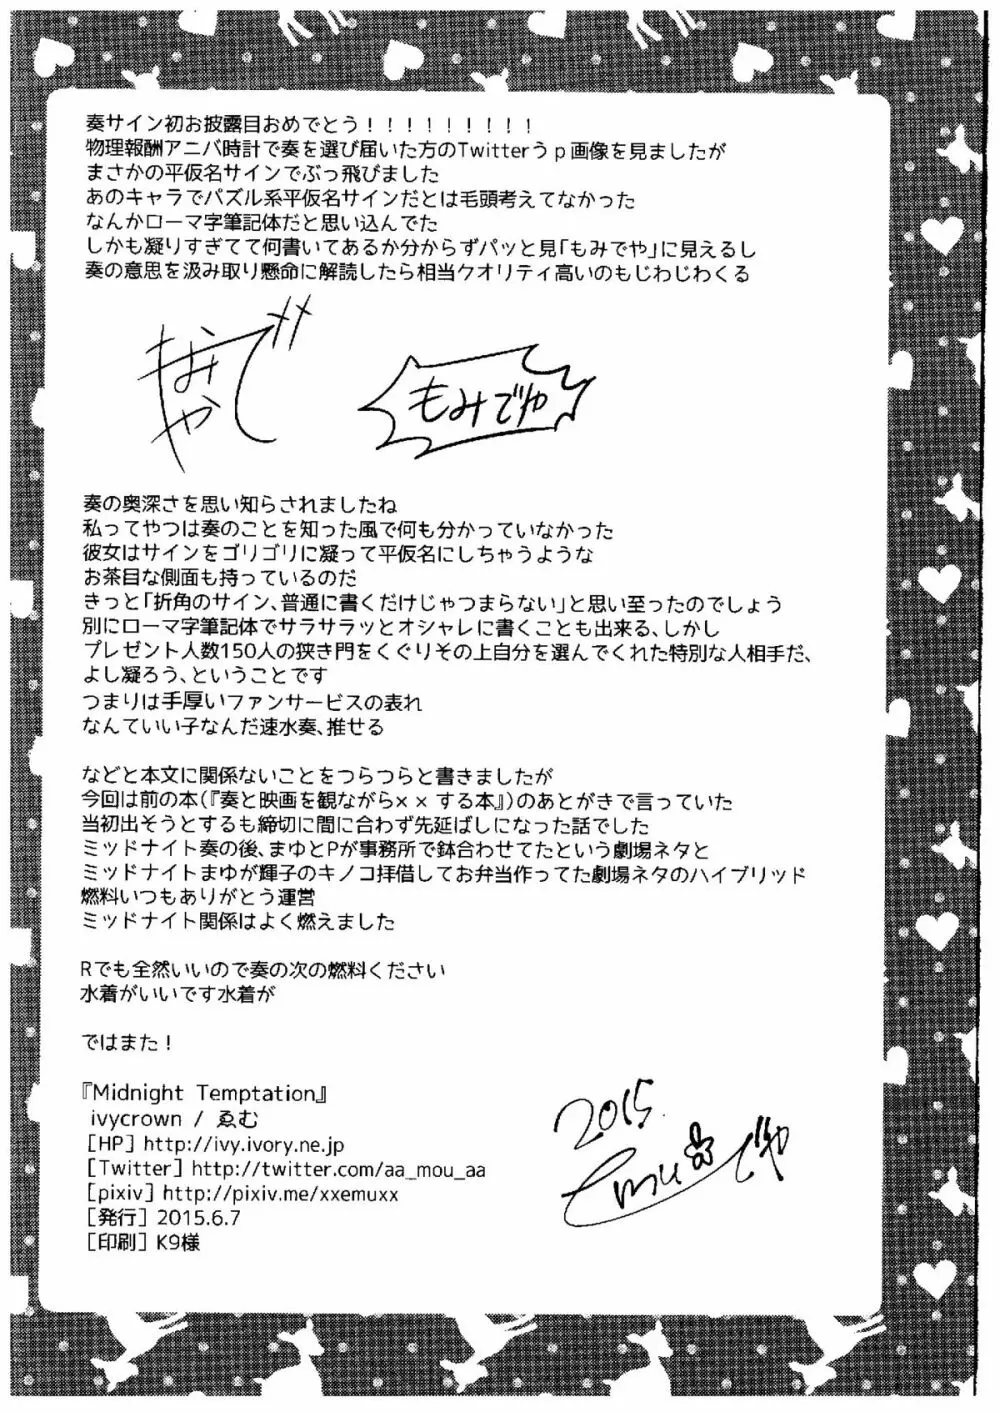 奏サイン初お披露目おめでとう！！！！！！！！！
物理報酬アニバ時計で奏を選び届いた方のTwitterうｐ画像を見ましたが
まさかの平仮名サインでぶっ飛びました
あのキャラでパズル系平仮名サインだとは毛頭考えてなかった
なんかローマ字筆記体だと思い込んでた
しかも凝りすぎてて何書いてあるか分からずパッと見「もみでや」に見えるし
奏の意思を汲み取り懸命に解読したら相当クオリティ高いのもじわじわくる
もみでや
奏の奥深さを思い知らされましたね
私ってやつは奏のことを知った風で何も分かっていなかった
彼女はサインをゴリゴリに凝って平仮名にしちゃうような
お茶目な側面も持っているのだ
きっと「折角のサイン、普通に書くだけじゃつまらない」と思い至ったのでしょう
別にローマ字筆記体でサラサラッとオシャレに書くことも出来る、しかし
プレゼント人数150人の狭き門をくぐりその上自分を選んでくれた特別な人相手だ、
よし凝ろう、ということです
つまりは手厚いファンサービスの表れ
なんていい子なんだ速水奏、推せる
などと本文に関係ないことをつらつらと書きましたが
今回は前の本（『奏と映画を観ながら××する本』）のあとがきで言っていた
当初出そうとするも締切に間に合わず先延ばしになった話でした
ミッドナイト奏の後、まゆとPが事務所で鉢合わせてたという劇場ネタと
ミッドナイトまゆが輝子のキノコ拝借してお弁当作ってた劇場ネタのハイブリッド
燃料いつもありがとう運営
ミッドナイト関係はよく燃えました
Rでも全然いいので奏の次の燃料ください
水着がいいです水着が
ではまた！
『Midnight Temptation』
ivycrown / ゑむ
［HP］http://ivy.ivory.ne.jp
［Twitter］http://twitter.com/aa_mou_aa
［pixiv］http://pixiv.me/xxemuxx
［発行］2015.6.7
［印刷］K9様
2015.
emu でや